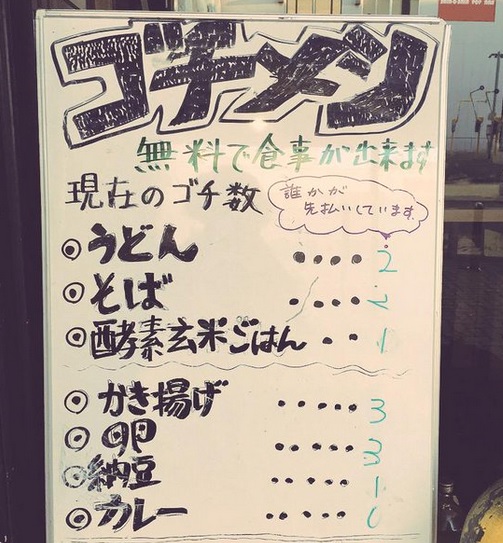 ゴチメシ
無料で食事が出来ます
現在のゴチ数
誰かが
先払いしています。
◎うどん ・・・・ 2
◎そば ・・・・ 2
◎酵素玄米ごはん ・・ 1
◎かき揚げ ・・・・・ 3
◎卵 ・・・・・ 3
◎納豆 ・・・・・ 1
◎カレー ・・・・・ 0